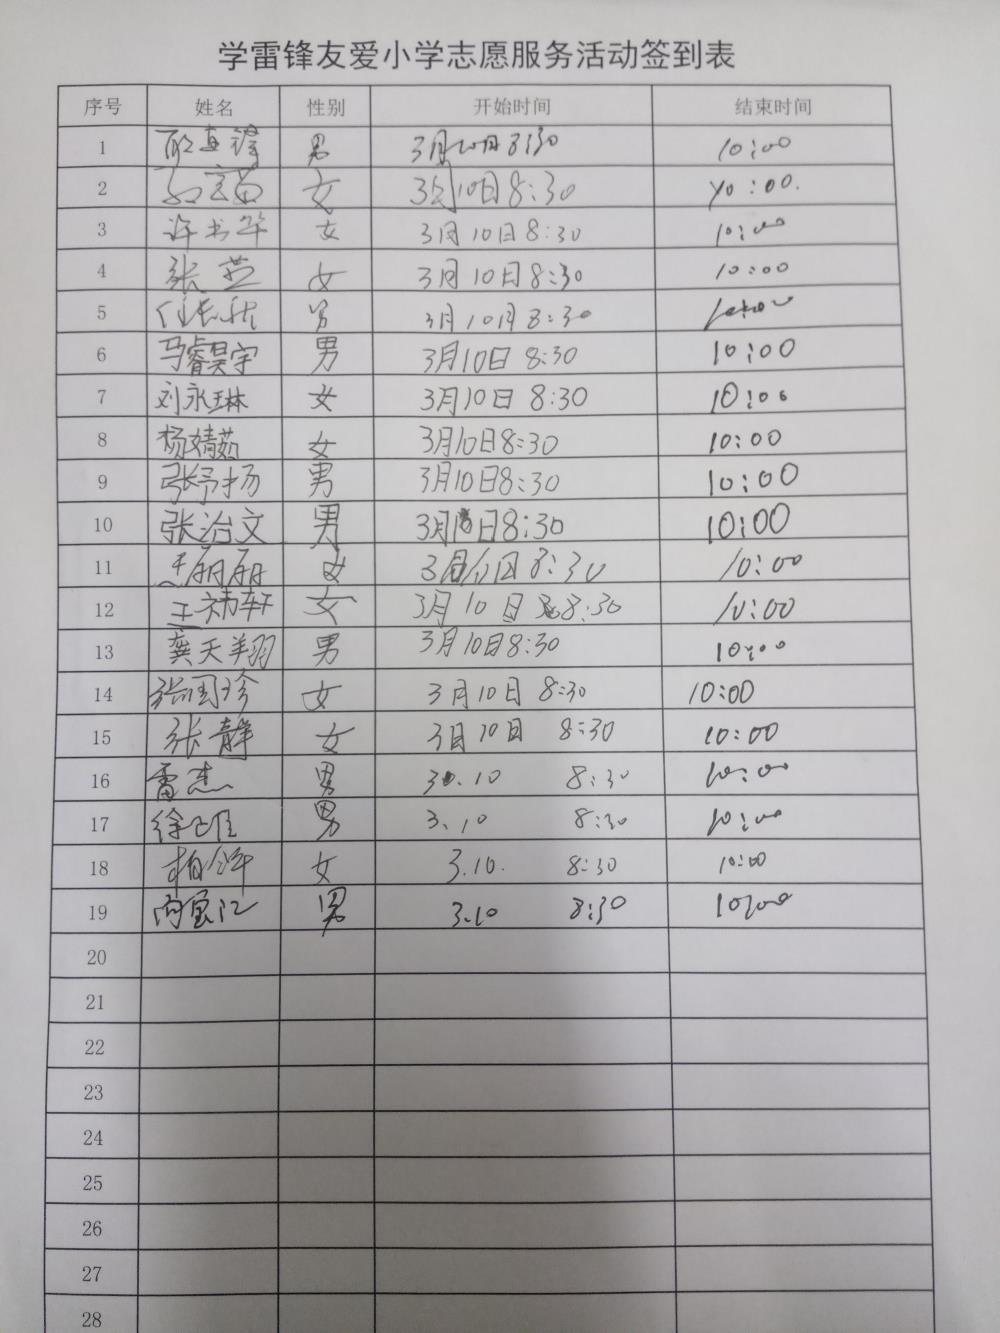 学雷锋友爱小学志愿服务活动签到表
序号 姓名 性别 开始时间 结束时间
1 男 3月10日8:30 10:00
2 女 3月10日8:30 10:00.
3 许书华 女 3月10日8:30 10:00
4 张燕 女 3月10日8:30 10:00
5 男 3月10月8:30
6 马睿昊宇 男 3月10日 8:30 10:00
7 刘永琳 女 3月10日 8:30 10:00
8 杨婧茹 女 3月10日8:30 10:00
9 张予扬 男 3月10日8:30 10:00
10 张治文 男 3月10日8:30 10:00
11 王丽丽 女 8:30 10:00
12 王祎轩 女 3月10日 8:30 10:00
13 龚天翔 男 3月10日8:30 10:00
14 张国珍 女 3月10日 8:30 10:00
15 张静 女 3月10日 8:30 10:00
16 雷杰 男 3.10 8:30 10:00
17 男 3.10 8:30 10:00
18 女 3.10. 8:30 10:00
19 男 3.10 8:30 10:00
20
21
22
23
24
25
26
27
28